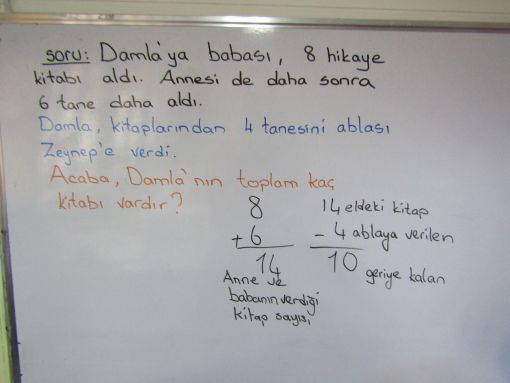 soru: Damla'ya babası, 8 hikaye
kitabı aldı. Annesi de daha sonra
6 tane daha aldı.
Damla, kitaplarından 4 tanesini ablası
Zeynep'e verdi.
Acaba, Damla'nın toplam kaç
kitabı vardır?
8
+6
14
Anne ve
babanın verdiği
kitap sayısı
14 eldeki kitap
- 4 ablaya verilen
10 geriye kalan